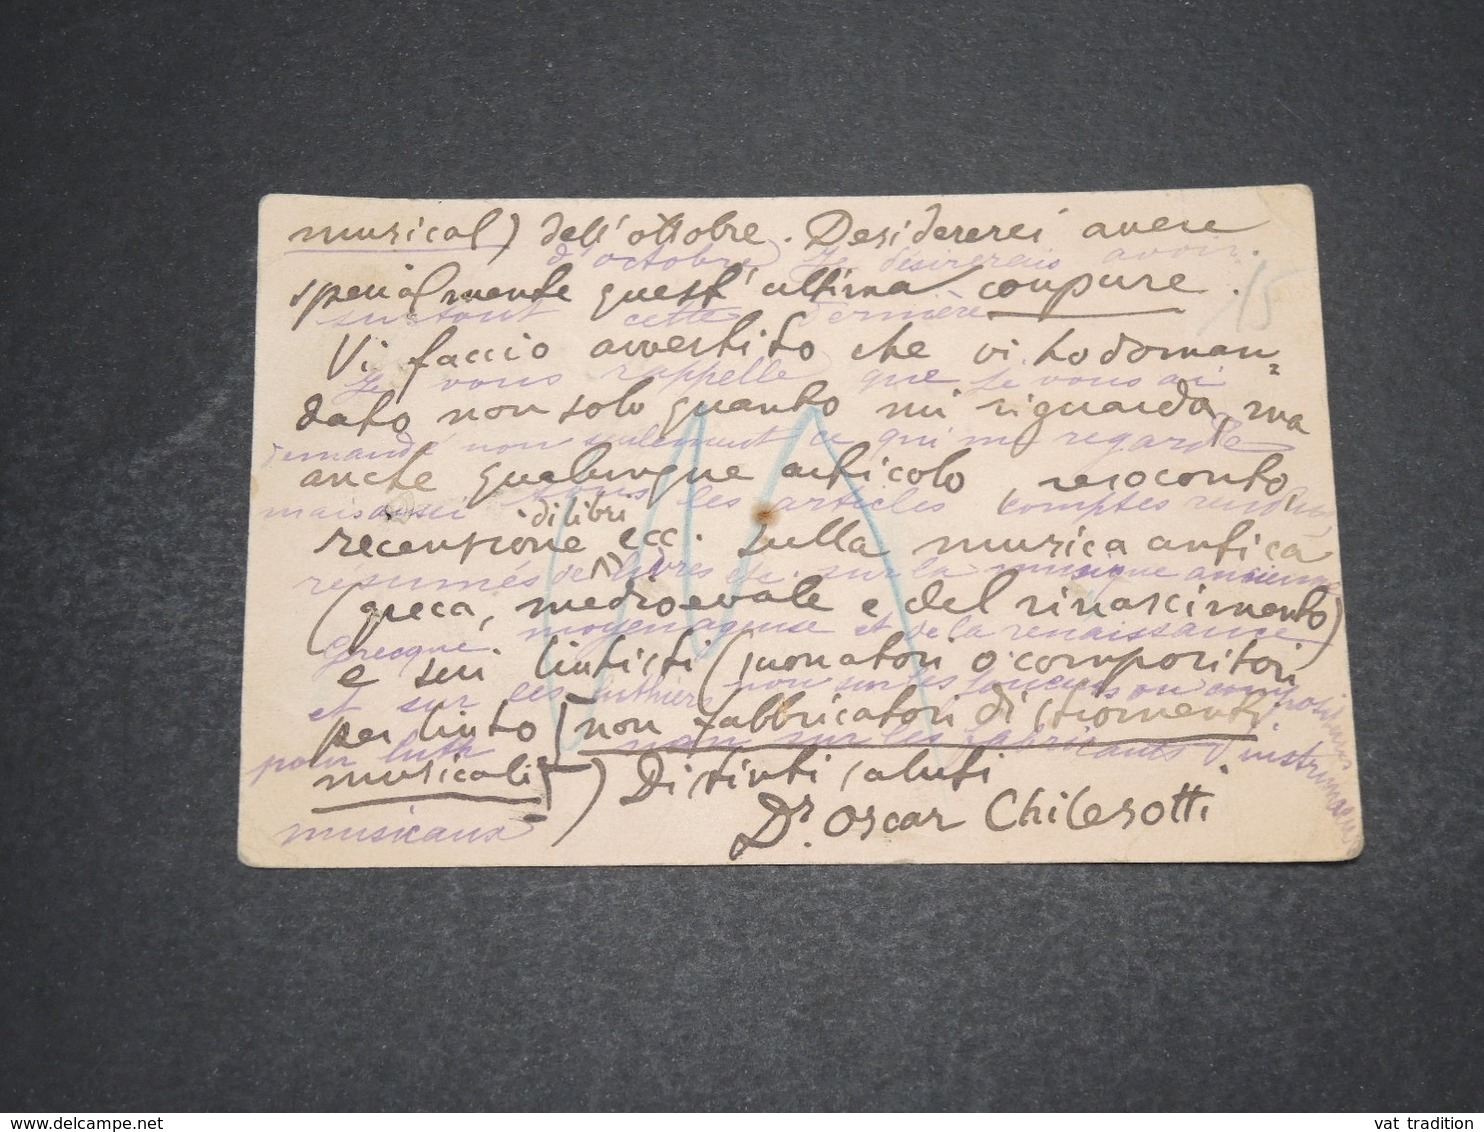 musical) dell'ottobre. Desidererei avere
d'octobre) Je désirerais avoir
specialmente quest'ultima coupure.
surtout cette dernière
15
Vi faccio avvertito che vi ho doman=
Je vous rappelle que je vous ai
dato non solo quanto mi riguarda, ma
demandé non seulement ce qui me regarde
anche qualunque articolo, resoconto,
mais aussi tous les articles comptes rendus,
di libri
recensione ecc. sulla musica antica
résumés de livres etc. sur la musique ancienne
(greca, medioevale e del rinascimento)
Grecque. moyenageuse et de la renaissance
e sui liutisti (suonatori o compositori
et sur les luthiers non sur les joueurs ou compositeurs
per liuto [non fabbricatori di stromenti
pour luth non sur les fabricants d'instruments
musicali]) Distinti saluti
musicaux
Dr. Oscar Chilesotti
vat tradition